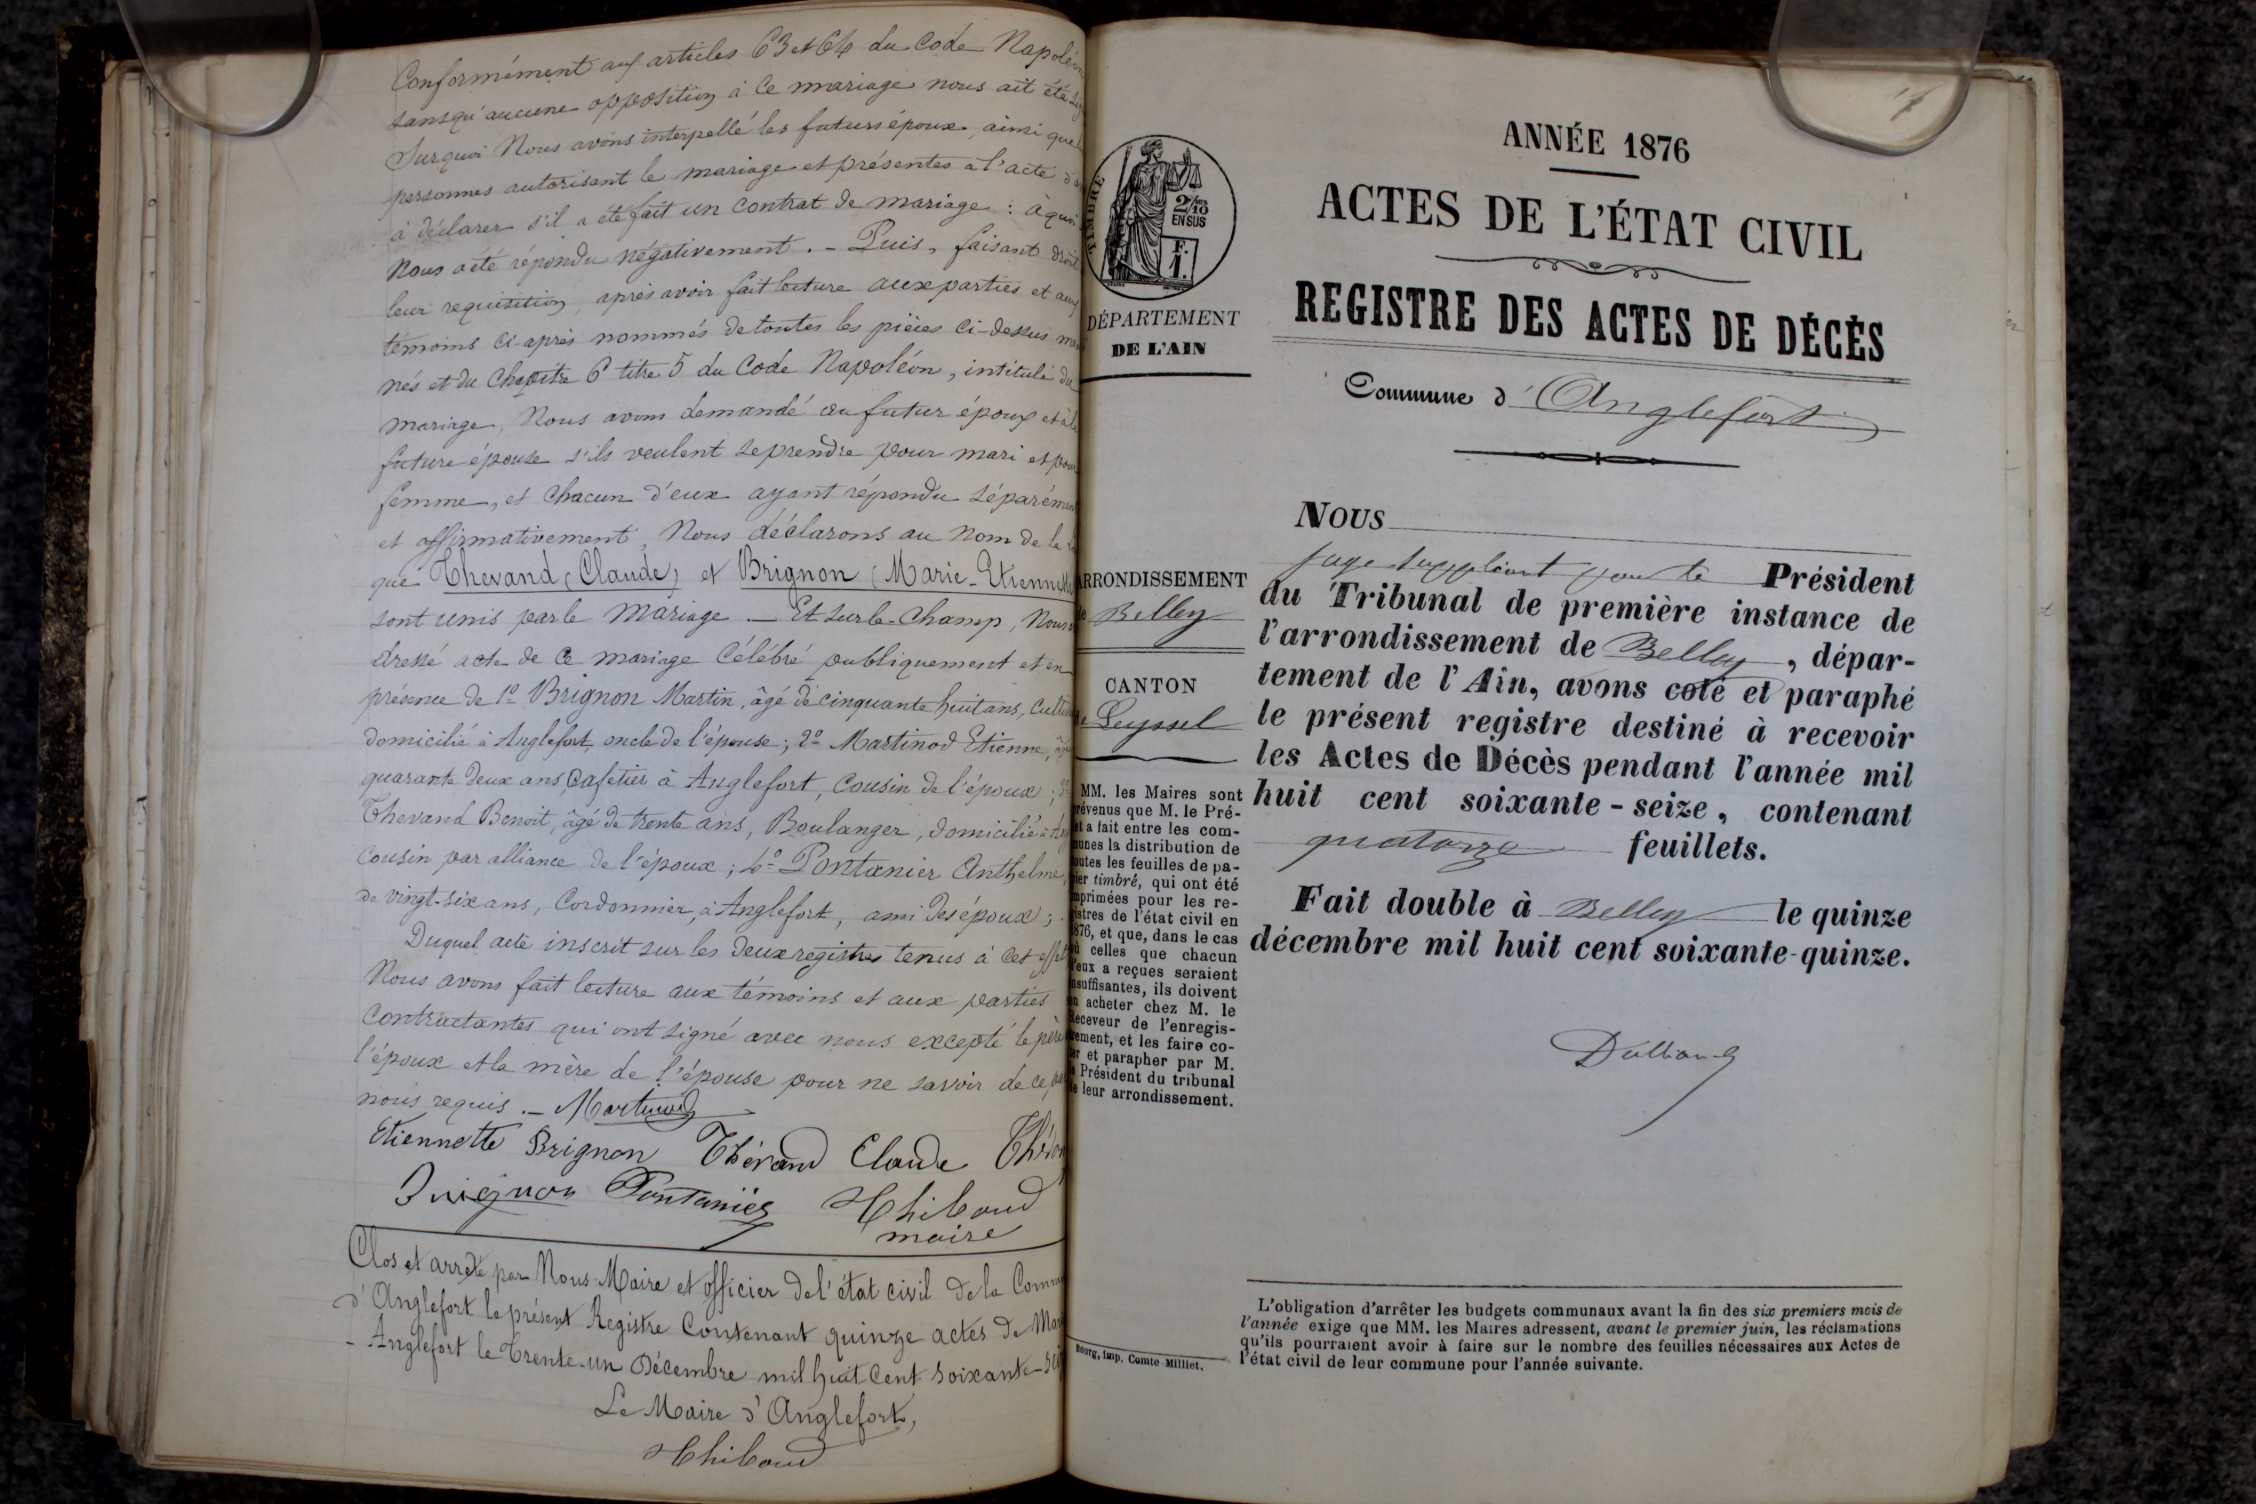 Conformément aux articles 63 et 64 du Code Napoléon
sans qu'aucune opposition à ce mariage nous ait été
Sur quoi Nous avons interpellé les futurs époux, ainsi que
personnes autorisant le mariage et présentes à l'acte
à déclarer s'il a été fait un contrat de mariage : à quoi
Nous a été répondu négativement. – Puis, faisant droit
leur requisition, après avoir fait lecture aux parties et aux
témoins ci-après nommés de toutes les pièces ci-dessus
nés et du Chapitre 6 titre 5 du Code Napoléon, intitulé du
mariage, Nous avons demandé au futur époux et à la
future épouse s'ils veulent se prendre pour mari et pour
femme, et chacun d'eux ayant répondu séparément
et affirmativement, Nous déclarons au nom de la
que Thevand (Claude) et Brignon (Marie-Etiennette
sont unis par le mariage – Et sur le-champ, Nous
dressé acte de ce mariage célébré publiquement et en
présence de 1º Brignon Martin, âgé de cinquante huit ans,
domicilié à Anglefort, oncle de l'épouse; 2º Martinod Etienne,
quarante deux ans Cafetier à Anglefort, cousin de l'époux;
Thevand Benoit, âgé de trente ans, Boulanger, domicilié à
cousin par alliance de l'époux; 4º Pontanier Anthelme,
de vingt-six ans, Cordonnier, à Anglefort, ami des époux;
Duquel acte inscrit sur les deux registres tenus à cet effet
Nous avons fait lecture aux témoins et aux parties
contractantes qui ont signé avec nous excepté le père
l'époux et la mère de l'épouse pour ne savoir de ce
nous requis. – Martinod
Etiennette Brignon Thévand Claude
Brignon Pontanier Thiboud
maire
Clos et arrêté par Nous Maire et officier de l'état civil de la
d'Anglefort le présent Registre Contenant quinze actes de
– Anglefort le Trente-un Décembre mil huit cent soixante-
Le Maire d'Anglefort,
Thiboud
TIMBRE
2/10
EN SUS
F.
1.
DÉPARTEMENT
DE L'AIN
ARRONDISSEMENT
de Belley
CANTON
de Seyssel
MM. les Maires sont
prévenus que M. le Pré-
et a fait entre les com-
munes la distribution de
toutes les feuilles de pa-
pier timbré, qui ont été
imprimées pour les re-
gistres de l'état civil en
1876, et que, dans le cas
où celles que chacun
d'eux a reçues seraient
insuffisantes, ils doivent
en acheter chez M. le
Receveur de l'enregis-
trement, et les faire co-
ter et parapher par M.
le Président du tribunal
de leur arrondissement.
Bourg, imp. Comte-Milliet.
ANNÉE 1876
ACTES DE L'ÉTAT CIVIL
REGISTRE DES ACTES DE DÉCÈS
Commune d'Anglefort
NOUS
juge suppléant pour le Président
du Tribunal de première instance de
l'arrondissement de Belley, dépar-
tement de l'Ain, avons coté et paraphé
le présent registre destiné à recevoir
les Actes de Décès pendant l'année mil
huit cent soixante-seize, contenant
quatorze feuillets.
Fait double à Belley le quinze
décembre mil huit cent soixante-quinze.
L'obligation d'arrêter les budgets communaux avant la fin des six premiers mois de
l'année exige que MM. les Maires adressent, avant le premier juin, les réclamations
qu'ils pourraient avoir à faire sur le nombre des feuilles nécessaires aux Actes de
l'état civil de leur commune pour l'année suivante.